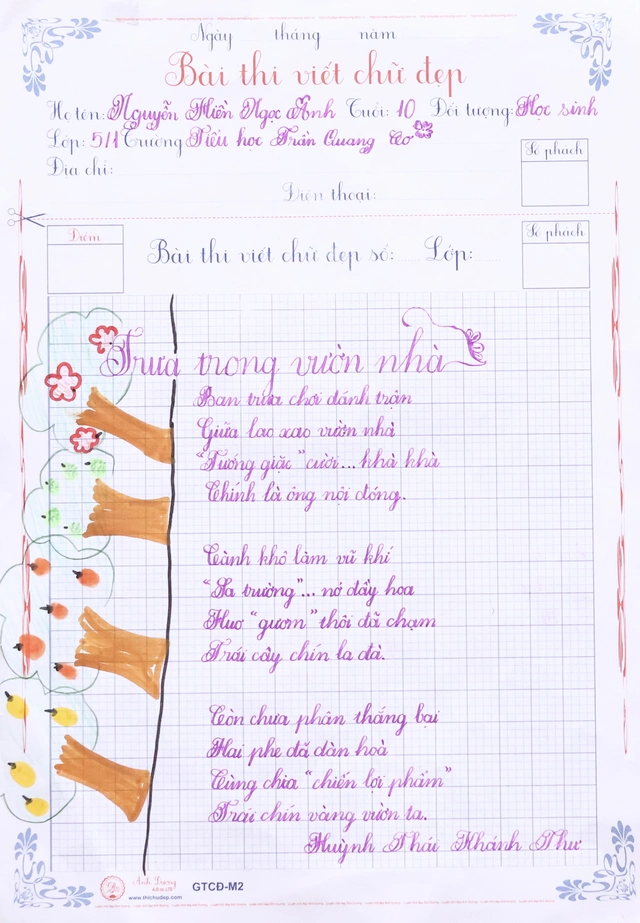 Ngày tháng năm
Bài thi viết chữ đẹp
Họ tên: Nguyễn Hiền Ngọc Ánh Tuổi: 10 Đối tượng: Học sinh
Lớp: 5/1 Trường Tiểu học Trần Quang Cơ
Địa chỉ:
Số phách
Điện thoại:
Điểm
Bài thi viết chữ đẹp số: Lớp:
Số phách
Trưa trong vườn nhà
Ban trưa chơi đánh trận
Giữa lao xao vườn nhà
"Tướng giặc" cười... khà khà
Chính là ông nội đóng.
Cành khô làm vũ khí
"Sa trường"... nở đầy hoa
Huơ "gươm" thôi đã chạm
Trái cây chín la đà.
Còn chưa phân thắng bại
Hai phe đã dàn hoà
Cùng chia "chiến lợi phẩm"
Trái chín vàng vườn ta.
Huỳnh Thái Khánh Thư
Ánh Dương
GTCĐ-M2
www.thichudep.com